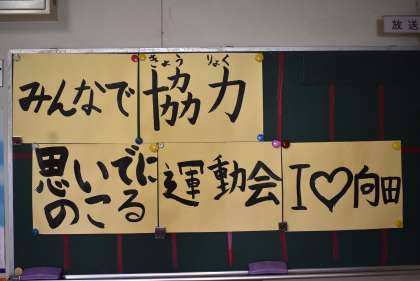 放送
きょう りょく
みんなで 協力
思いでに 運動会 I♡向田
のこる